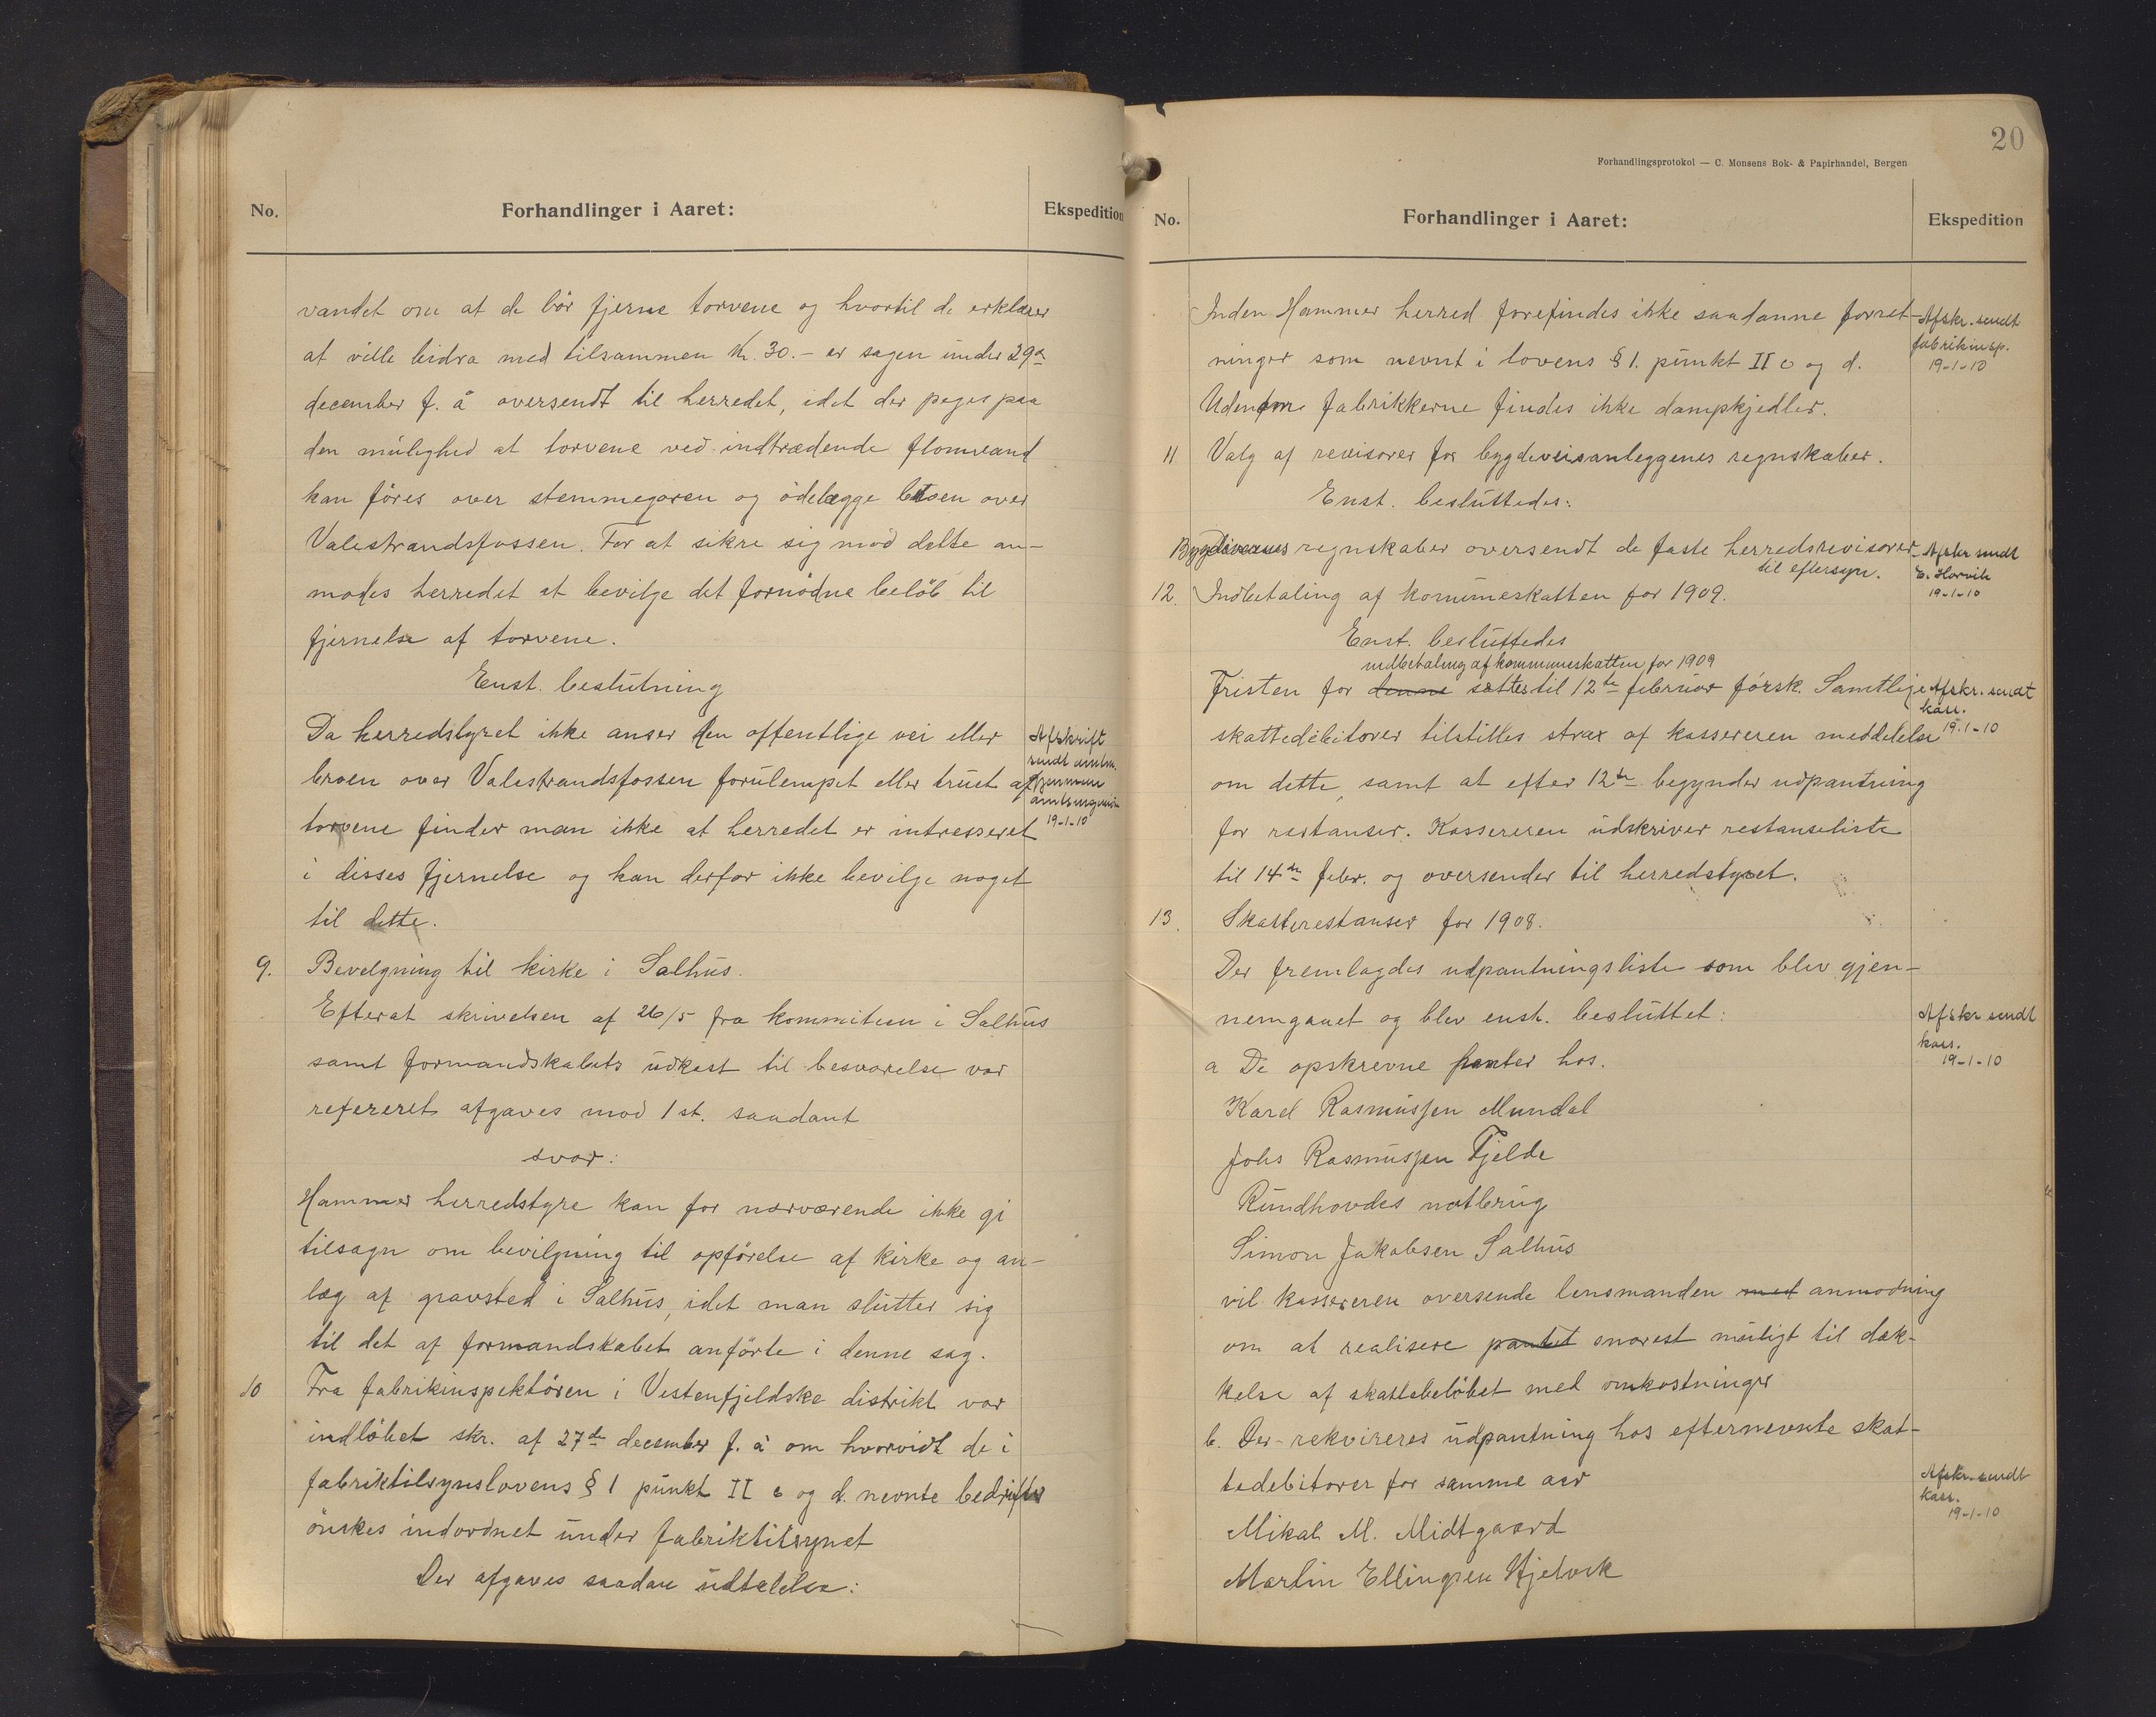 No.
Forhandlinger i Aaret:
Ekspedition
vandet om at de bör fjerne torvene og hvortil de erklærer
at ville bidra med tilsammen kr. 30.- er sagen under 29de
december f. å oversendt til herredet, idet der peges paa
den mulighed at torvene ved indtrædende flomvand
kan föres over stemmegaren og ödelægge broen over
Valestrandsfossen. For at sikre sig mod dette an-
modes herredet at bevilge det fornödne belöb til
fjernelse af torvene.
Enst. beslutning
Da herredstyret ikke anser den offentlige vei eller
broen over Valestrandsfossen forulempet eller truet af
torvene finder man ikke at herredet er intresseret
i disses fjernelse og kan derfor ikke bevilge noget
til dette.
Afskrift
sendt amtm.
gjennem
amtsingeniör
19-1-10
9. Bevelgning til kirke i Salhus.
Efterat skrivelsen af 26/5 fra kommiteen i Salhus
samt formandskabets udkast til besvarelse var
refereret afgaves mod 1 st. saadant
svar:
Hammer herredstyre kan for nærværende ikke gi
tilsagn om bevilgning til opförelse af kirke og an-
læg af gravsted i Salhus, idet man slutter sig
til det af formandskabet anförte i denne sag.
10 Fra fabrikinspektören i Vestenfjeldske distrikt var
indlöbet skr. af 27de december f. å om hvorvidt de i
fabriktilsynslovens § 1 punkt II c og d. nevnte bedrifter
önskes indordnet under fabriktilsynet
Der afgaves saadan udtalelse:
20
Forhandlingsprotokol — C. Monsens Bok- & Papirhandel, Bergen
No.
Forhandlinger i Aaret:
Ekspedition
Inden Hammer herred forefindes ikke saadanne forret-
ninger som nevnt i lovens § 1. punkt II c og d.
Udenom fabrikkerne findes ikke dampkjedler.
Afskr. sendt
fabrikinsp.
19-1-10
11 Valg af revisorer for bygdeveisanleggenes regnskaber.
Enst. besluttedes:
Bygdeveienes regnskaber oversendt de faste herredsrevisorer
til eftersyn.
Afskr sendt
E. Horvik
19-1-10
12. Indbetaling af kommuneskatten for 1909.
Enst. besluttedes
indbetaling af kommuneskatten for 1909
Fristen for denne sættes til 12te februar försk. Samtlige
skattedebitorer tilstilles strax af kassereren meddelelse
om dette, samt at efter 12te begynder udpantning
for restanser. Kassereren udskriver restanseliste
til 14de febr. og oversender til herredstyret.
Afskr. sendt
kass.
19-1-10
13. Skatterestanser for 1908.
Der fremlagdes udpantningsliste som blev gjen-
nemgaaet og blev enst. besluttet:
a De opskrevne panter hos.
Afskr sendt
kass.
19-1-10
Karel Rasmussen Mundal
Johs Rasmussen Fjelde
Rundhovdes notbrug
Simon Jakobsen Salhus
vil kassereren oversende lensmanden med anmodning
om at realisere pantet snarest muligt til dæk-
kelse af skattebelöbet med omkostninger
b. Der rekvireres udpantning hos efternevnte skat-
tedebitorer for samme aar
Mikal M. Midtgaard
Martin Ellingsen Hjelvik
Afskr. sendt
kass.
19-1-10